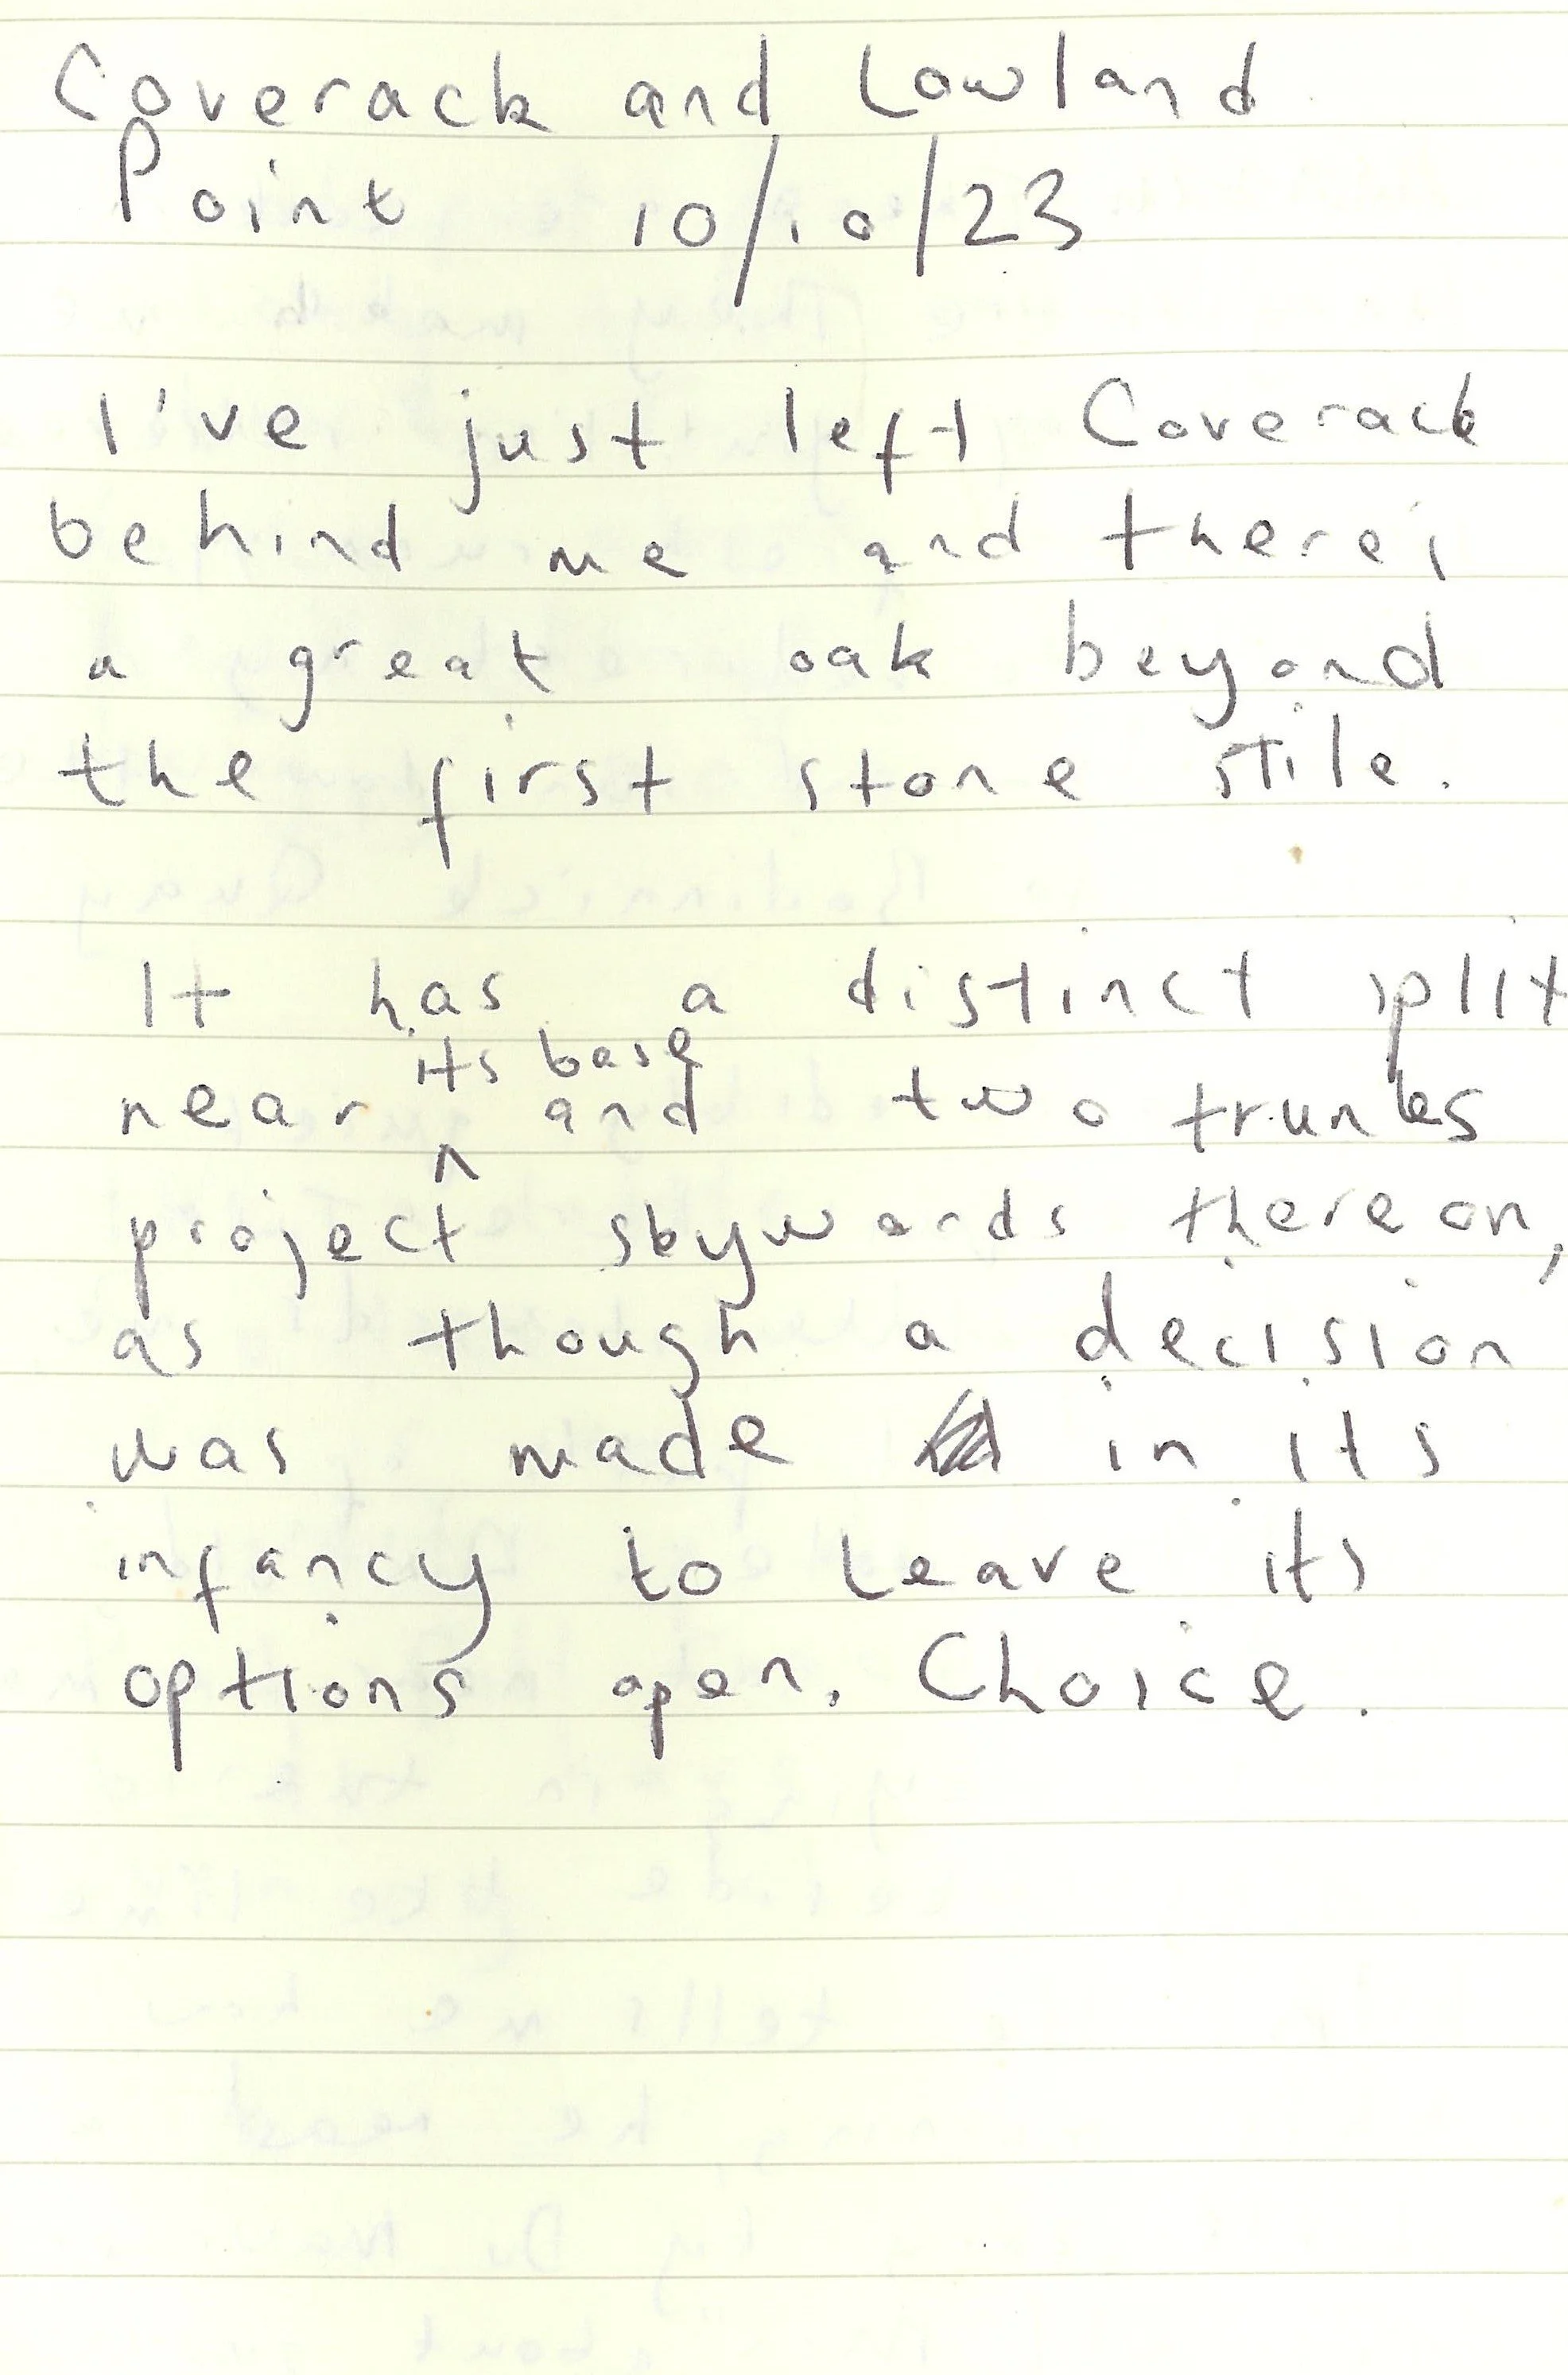 Coverack and Lowland
Point 10/10/23
I've just left Coverack
behind me and there's
a great oak beyond
the first stone stile.
It has a distinct split
near its base and two trunks
project skywards thereon,
as though a decision
was made in its
infancy to leave its
options open. Choice.